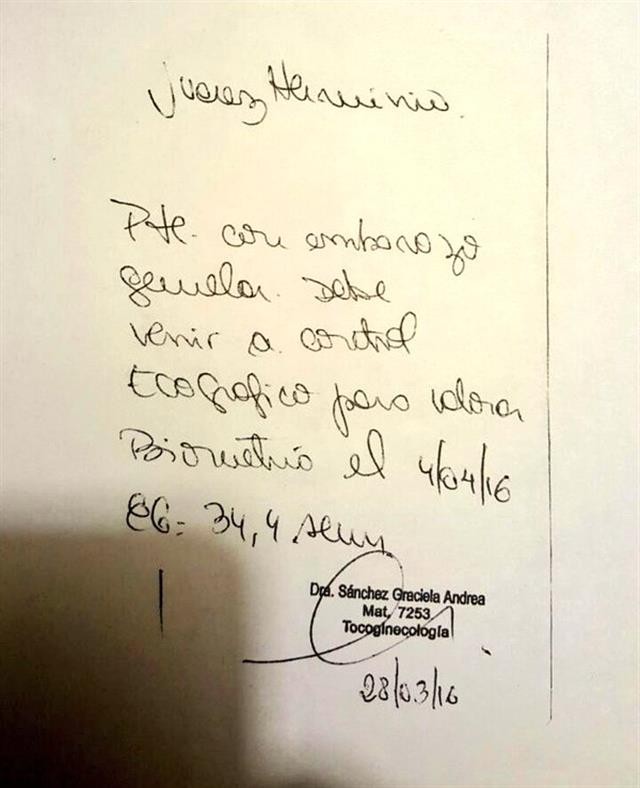 Juarez Herminia.
Pte. con embarazo
gemelar. Debe
venir a control
Ecografico para valorar
Biometria el 4/04/16
EG= 34,4 sem
Dra. Sánchez Graciela Andrea
Mat. 7253
Tocoginecología
28/03/16